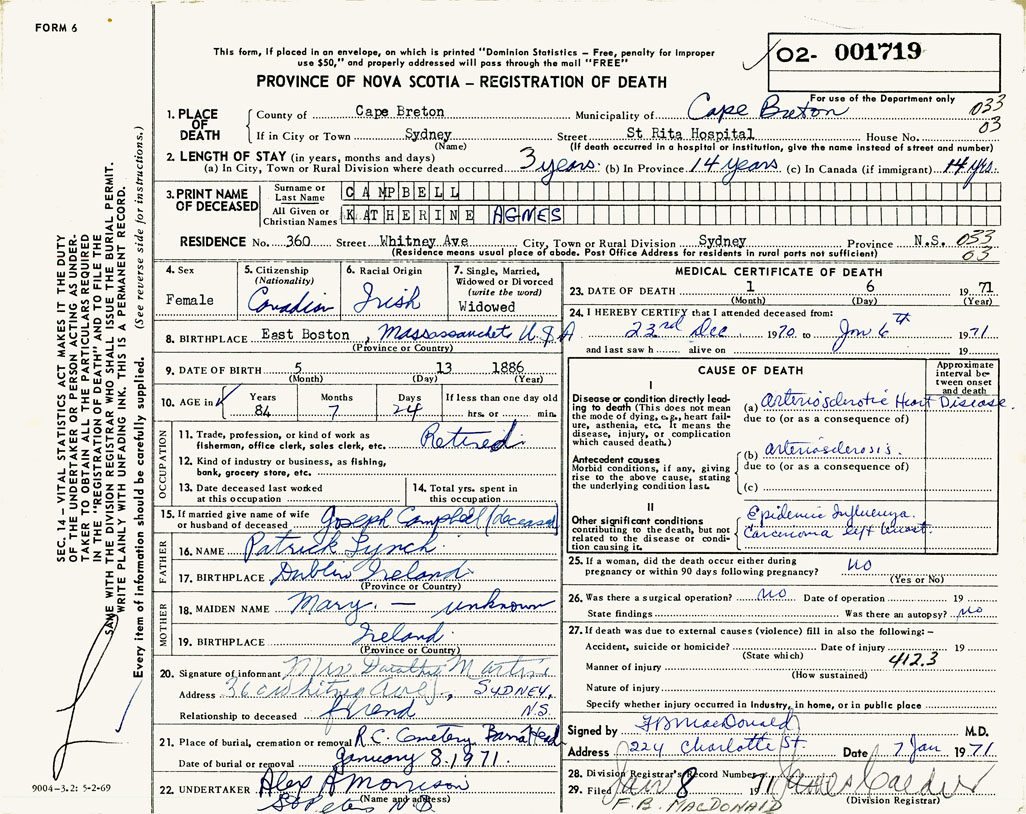 FORM 6
This form, if placed in an envelope, on which is printed "Dominion Statistics – Free, penalty for improper
use $50," and properly addressed will pass through the mail "FREE"
PROVINCE OF NOVA SCOTIA – REGISTRATION OF DEATH
02- 001719
For use of the Department only
033
03
1. PLACE OF DEATH
County of Cape Breton Municipality of Cape Breton
If in City or Town Sydney Street St Rita Hospital House No.
(Name) (If death occurred in a hospital or institution, give the name instead of street and number)
2. LENGTH OF STAY (in years, months and days)
(a) In City, Town or Rural Division where death occurred 3 years. (b) In Province 14 years (c) In Canada (if immigrant) 14 yrs.
3. PRINT NAME OF DECEASED
Surname or Last Name CAMPBELL
All Given or Christian Names KATHERINE AGNES
RESIDENCE No. 360 Street Whitney Ave City, Town or Rural Division Sydney Province N.S. 033
03
(Residence means usual place of abode. Post Office Address for residents in rural parts not sufficient)
4. Sex
Female
5. Citizenship
(Nationality)
Canadian
6. Racial Origin
Irish
7. Single, Married,
Widowed or Divorced
(write the word)
Widowed
8. BIRTHPLACE East Boston, Massassanchets U.S.A
(Province or Country)
9. DATE OF BIRTH 5 13 1886
(Month) (Day) (Year)
10. AGE in
Years Months Days If less than one day old
84 7 24 hrs. or min.
OCCUPATION
11. Trade, profession, or kind of work as
fisherman, office clerk, sales clerk, etc. Retired
12. Kind of industry or business, as fishing,
bank, grocery store, etc.
13. Date deceased last worked
at this occupation
14. Total yrs. spent in
this occupation
15. If married give name of wife
or husband of deceased Joseph Campbell (deceased)
FATHER
16. NAME Patrick Lynch.
17. BIRTHPLACE Dublin Ireland
(Province or Country)
MOTHER
18. MAIDEN NAME Mary. — unknown
19. BIRTHPLACE Ireland.
(Province or Country)
20. Signature of informant Mrs Dorothy
Address Whitney Ave, SYDNEY,
N.S.
Relationship to deceased friend
21. Place of burial, cremation or removal R.C. Cemetery Barra Head
Date of burial or removal January 8. 1971.
22. UNDERTAKER Alex A Morrison
(Name and address)
MEDICAL CERTIFICATE OF DEATH
23. DATE OF DEATH 1 6 1971
(Month) (Day) (Year)
24. I HEREBY CERTIFY that I attended deceased from:
23rd Dec 1970 to Jan 6th 1971
and last saw h alive on 19
CAUSE OF DEATH
Approximate
interval be-
tween onset
and death
I
Disease or condition directly lead-
ing to death (This does not mean
the mode of dying, e.g., heart fail-
ure, asthenia, etc. It means the
disease, injury, or complication
which caused death.)
(a) Arteriosclerotic Heart Disease.
due to (or as a consequence of)
Antecedent causes
Morbid conditions, if any, giving
rise to the above cause, stating
the underlying condition last.
(b) arteriosclerosis.
due to (or as a consequence of)
(c)
II
Other significant conditions
contributing to the death, but not
related to the disease or condi-
tion causing it.
Epidemic Influenza.
Carcinoma left breast.
25. If a woman, did the death occur either during
pregnancy or within 90 days following pregnancy? no
(Yes or No)
26. Was there a surgical operation? no Date of operation 19
State findings Was there an autopsy? no
27. If death was due to external causes (violence) fill in also the following: –
Accident, suicide or homicide? Date of injury 19
(State which) 412.3
Manner of injury
(How sustained)
Nature of injury
Specify whether injury occurred in industry, in home, or in public place
Signed by MacDonald M.D.
Address 224 Charlotte St. Date 7 Jan 1971.
28. Division Registrar's Record Number
29. Filed Jan 8 1971 James Calder
(Division Registrar)
F. B. MACDONALD
SEC. 14 – VITAL STATISTICS ACT MAKES IT THE DUTY
OF THE UNDERTAKER OR PERSON ACTING AS UNDER-
TAKER TO OBTAIN ALL THE PARTICULARS REQUIRED
IN THE "REGISTRATION OF DEATH" AND TO FILE THE
SAME WITH THE DIVISION REGISTRAR WHO SHALL ISSUE THE BURIAL PERMIT.
WRITE PLAINLY WITH UNFADING INK. THIS IS A PERMANENT RECORD.
Every item of information should be carefully supplied. (See reverse side for instructions.)
9004-3.2: 5-2-69